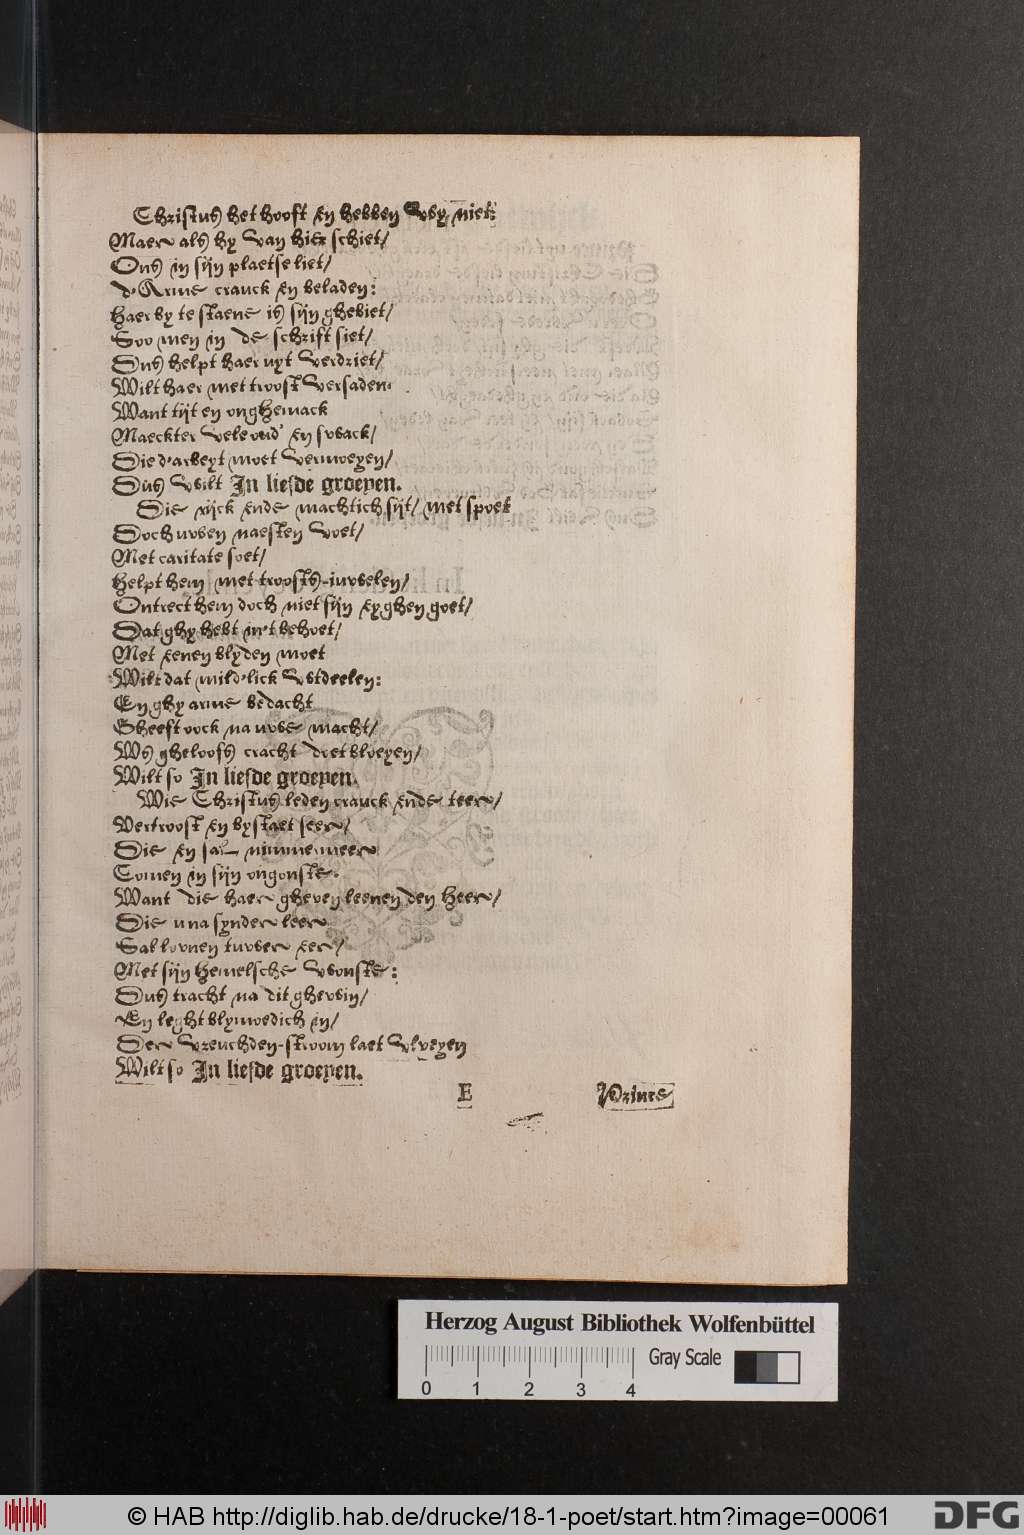 Christus het hooft en hebben wy niet:
Maer als hy van hier schiet/
Ons in sijn plaetse liet/
d'Arme cranck en beladen:
Haer by te staene is sijn ghebiet/
Soo men in de schrift siet/
Dus helpt haer uyt verdriet/
Wilt haer met troost versaden.
Want tijt en onghemack
Maeckter vele oud' en swack/
Die d'arbeyt moet vermoeyen/
Dus wilt In liefde groeyen.
Die rijck ende machtich sijt/ met spoet
Doch uwen naesten voet/
Met caritate soet/
Helpt hem met troosts-iuweelen/
Ontrect hem doch niet sijn eyghen goet/
Dat ghy hebt in't behoet/
Met eenen blyden moet
Wilt dat mild'lick wtdeelen:
En ghy arme bedacht
Gheeft oock na uwe macht/
Ws gheloofs cracht doet bloeyen/
Wilt so In liefde groeyen.
Wie Christus leden cranck ende teer/
Vertroost en bystaet seer/
Die en sal nimmermeer
Comen in sijn ongonste.
Want die haer gheven leenen den Heer/
Die u na synder leer
Sal loonen tuwer eer/
Met sijn hemelsche woonste:
Dus tracht na dit ghewin/
En leght blymoedich in/
Der vreuchden-stroom laet vloeyen
Wilt so In liefde groeyen.
E
Prince
Herzog August Bibliothek Wolfenbüttel
Gray Scale
0 1 2 3 4
© HAB http://diglib.hab.de/drucke/18-1-poet/start.htm?image=00061
DFG